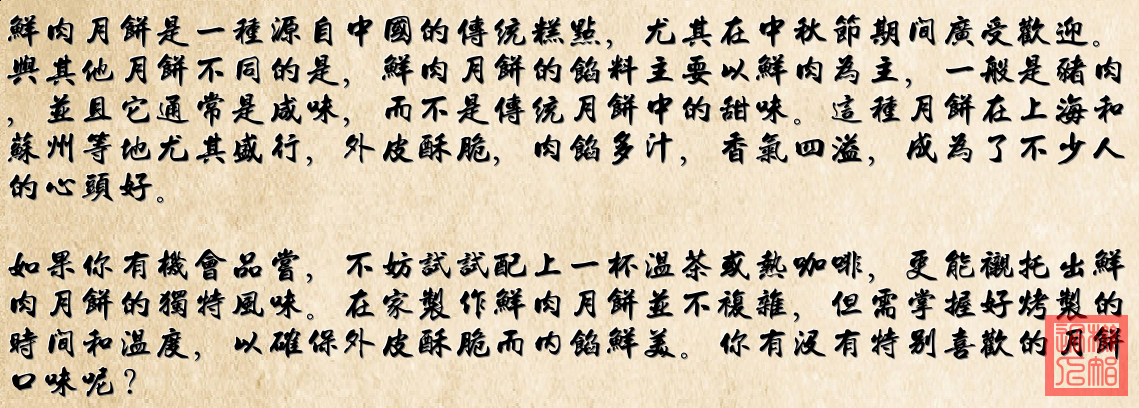 鮮肉月餅是一種源自中國的傳統糕點，尤其在中秋節期间廣受歡迎。
與其他月餅不同的是，鮮肉月餅的餡料主要以鮮肉為主，一般是豬肉
，並且它通常是咸味，而不是傳統月餅中的甜味。這種月餅在上海和
蘇州等地尤其盛行，外皮酥脆，肉餡多汁，香氣四溢，成為了不少人
的心頭好。
如果你有機會品嘗，不妨試試配上一杯溫茶或熱咖啡，更能襯托出鮮
肉月餅的獨特風味。在家製作鮮肉月餅並不複雜，但需掌握好烤製的
時间和溫度，以確保外皮酥脆而內餡鮮美。你有沒有特别喜歡的月餅
口味呢？